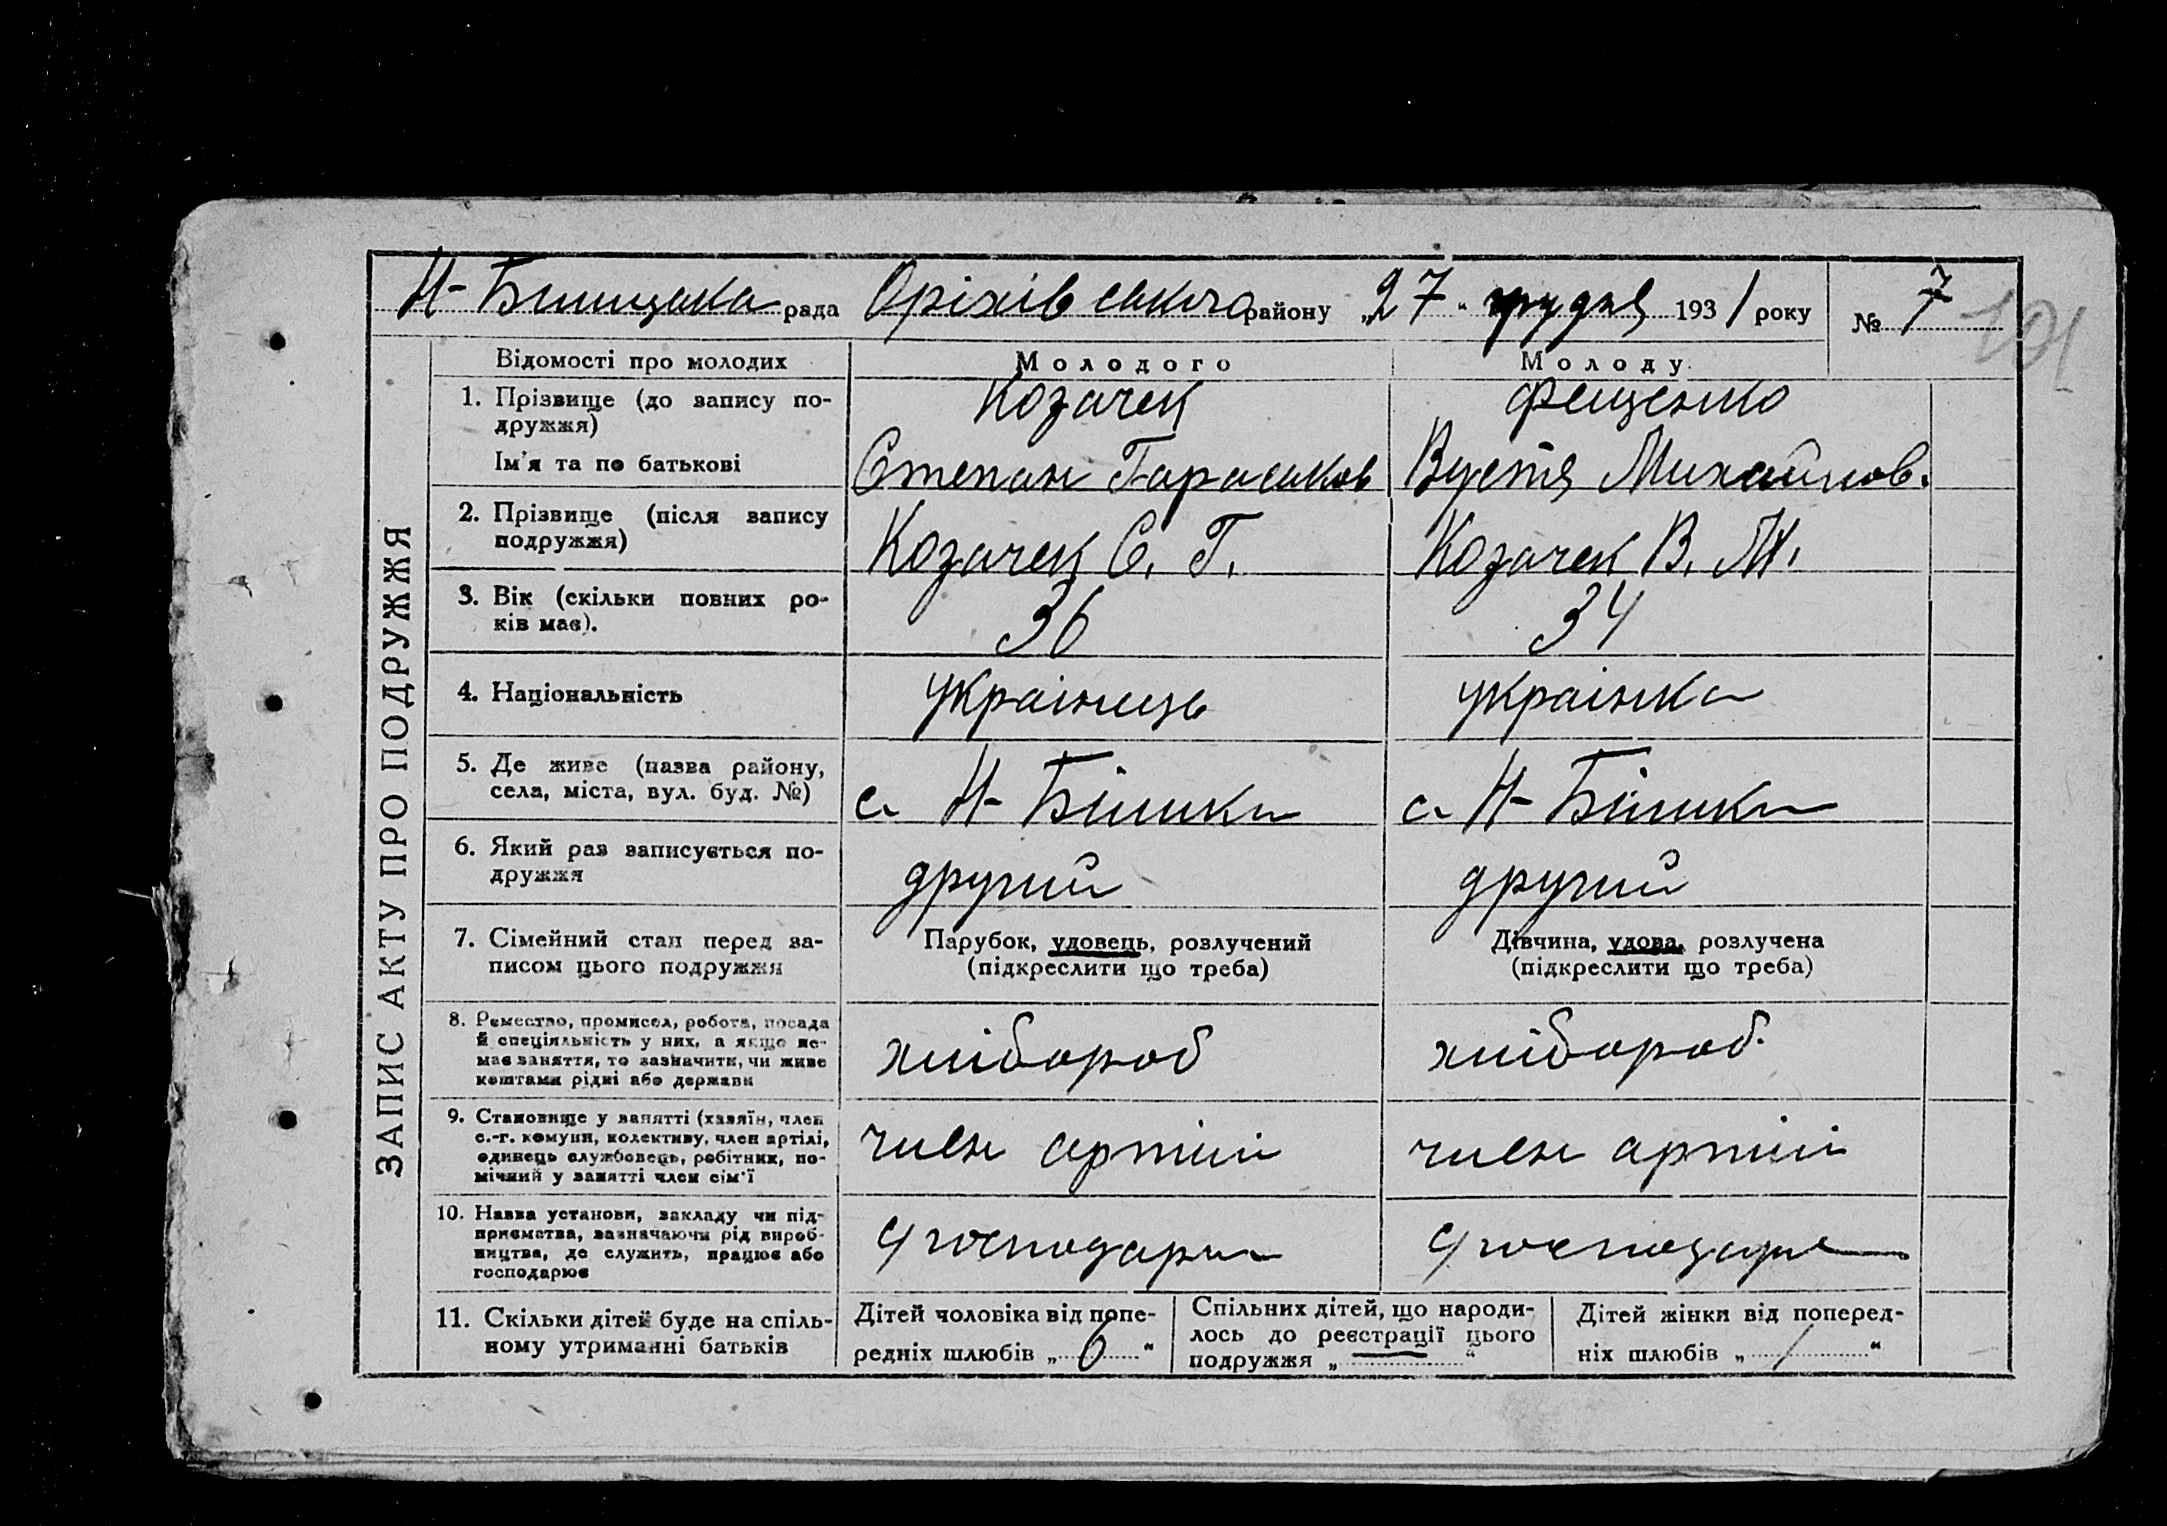 Н-Білицька рада Оріхівського району „27“ грудня 1931 року № 7
101
ЗАПИС АКТУ ПРО ПОДРУЖЖЯ
Відомості про молодих Молодого Молоду
1. Прізвище (до запису по- Козачек Фещенко
дружжя)
Ім'я та по батькові Степан Гараськов Вустя Михайлов.
2. Прізвище (після запису
подружжя) Козачек С. Г. Козачек В. М.
3. Вік (скільки повних ро-
ків має). 36 34
4. Національність українець українка
5. Де живе (назва району,
села, міста, вул. буд. №) с. Н-Білики с. Н-Білики
6. Який раз записується по-
дружжя другий другий
7. Сімейний стан перед за- Парубок, удовець, розлучений Дівчина, удова, розлучена
писом цього подружжя (підкреслити що треба) (підкреслити що треба)
8. Ремество, промисел, робота, посада
й спеціяльність у них, а якщо не- хлібороб хлібороб.
має заняття, то зазначити, чи живе
коштами рідні або держави
9. Становище у занятті (хазяїн, член
с.-г. комуни, колективу, член артілі, член артілі член артілі
одинець службовець, робітник, по-
мічний у занятті член сім'ї
10. Назва установи, закладу чи під-
приємства, зазначаючи рід вироб-
ництва, де служить, працює або
господарює
11. Скільки дітей буде на спіль- Дітей чоловіка від попе- Спільних дітей, що народи- Дітей жінки від поперед-
ному утриманні батьків редніх шлюбів „6“ лось до реєстрації цього ніх шлюбів „1“
подружжя „ “